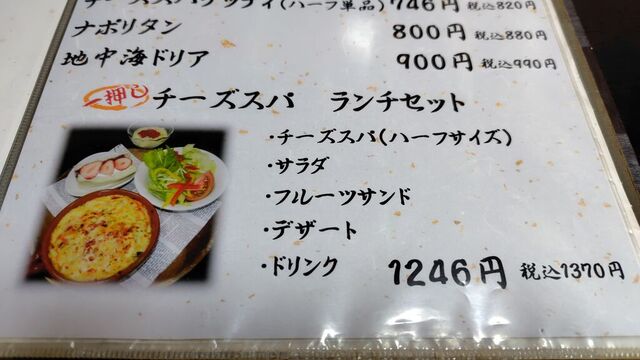 チーズスパゲッティ(ハーフ単品) 746円 税込820円
ナポリタン 800円 税込880円
地中海ドリア 900円 税込990円
一押し チーズスパ ランチセット
・チーズスパ(ハーフサイズ)
・サラダ
・フルーツサンド
・デザート
・ドリンク 1246円 税込1370円